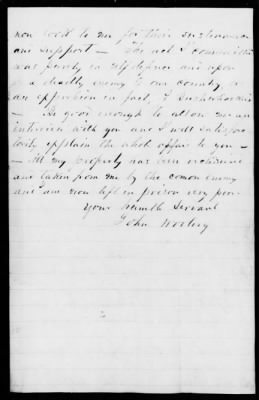 now look to me for their sustenance
and support — The act I committed
was purely in self defence and upon
a deadly enemy to our country,
an oppression in fact, &
— Be good enough to allow me an
interview with you and I will satisfac-
torily explain the whole affair to you —
— All my property has been
and taken from me by the common enemy
and am now left in prison very poor
Your humble Servant
John